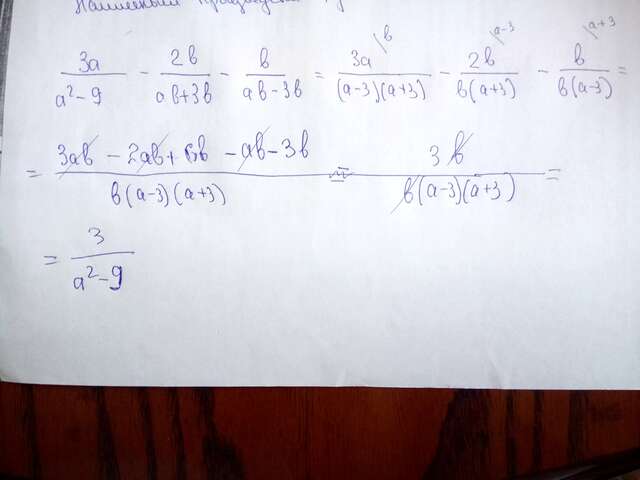 3a/(a²-9) - 2b/(ab+3b) - b/(ab-3b) = 3a/((a-3)(a+3)) \b - 2b/(b(a+3)) \a-3 - b/(b(a-3)) \a+3 =
= (3ab - 2ab + 6b - ab - 3b)/(b(a-3)(a+3)) = 3b/(b(a-3)(a+3)) =
= 3/(a²-9)